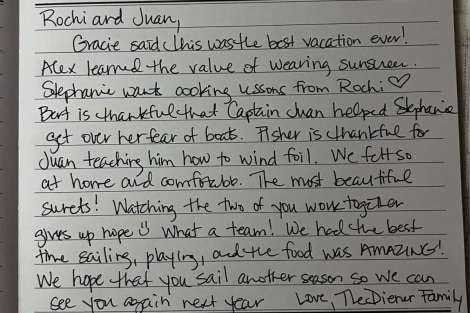 Rochi and Juan,
Gracie said this was the best vacation ever!
Alex learned the value of wearing sunscreen.
Stephanie wants cooking lessons from Rochi ♡
Bert is thankful that Captain Juan helped Stephanie
get over her fear of boats. Fisher is thankful for
Juan teaching him how to wind foil. We felt so
at home and comfortable. The most beautiful
sunsets! Watching the two of you work together
gives up hope ☺ What a team! We had the best
time sailing, playing, and the food was AMAZING!
We hope that you sail another season so we can
see you again next year Love, The Diener Family